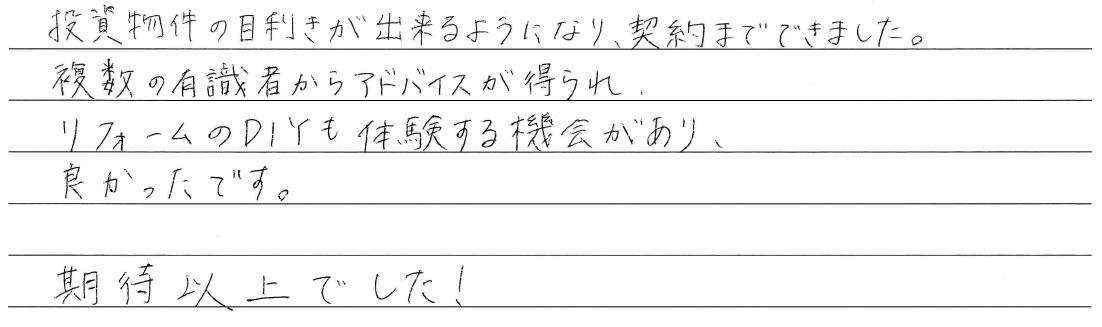 投資物件の目利きが出来るようになり、契約までできました。
複数の有識者からアドバイスが得られ、
リフォームのDIYも体験する機会があり、
良かったです。
期待以上でした!